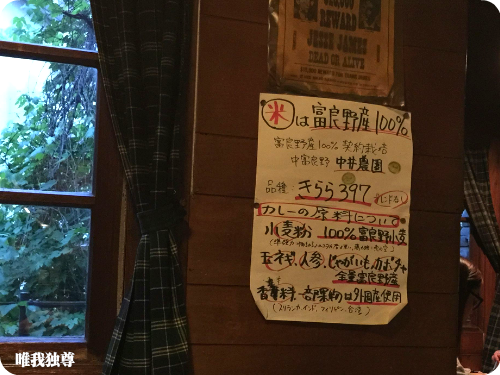 REWARD
JESSE JAMES
DEAD OR ALIVE
米は富良野産100%
富良野産100% 契約栽培
中富良野 中井農園
品種 きらら397
カレーの原料について
小麦粉 100%富良野小麦
玉ネギ、人参、じゃがいも、カボチャ
全量富良野産
香辛料、一部果物は外国産使用
(スリランカ、インド、フィリピン、台湾)
唯我独尊